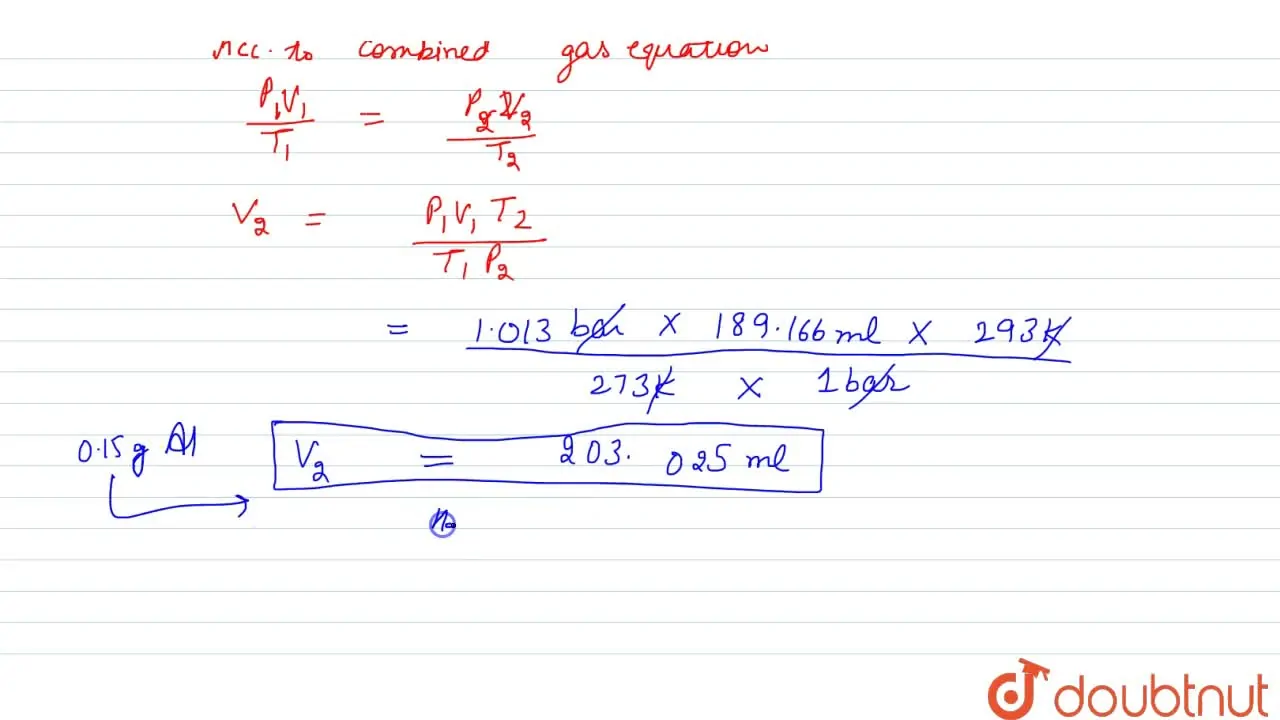 Acc. to combined gas equation
P₁V₁ / T₁ = P₂V₂ / T₂
V₂ = P₁V₁T₂ / T₁P₂
= 1.013 bar × 189.166 ml × 293K / 273K × 1 bar
0.15g Al
V₂ = 203.025 ml
doubtnut